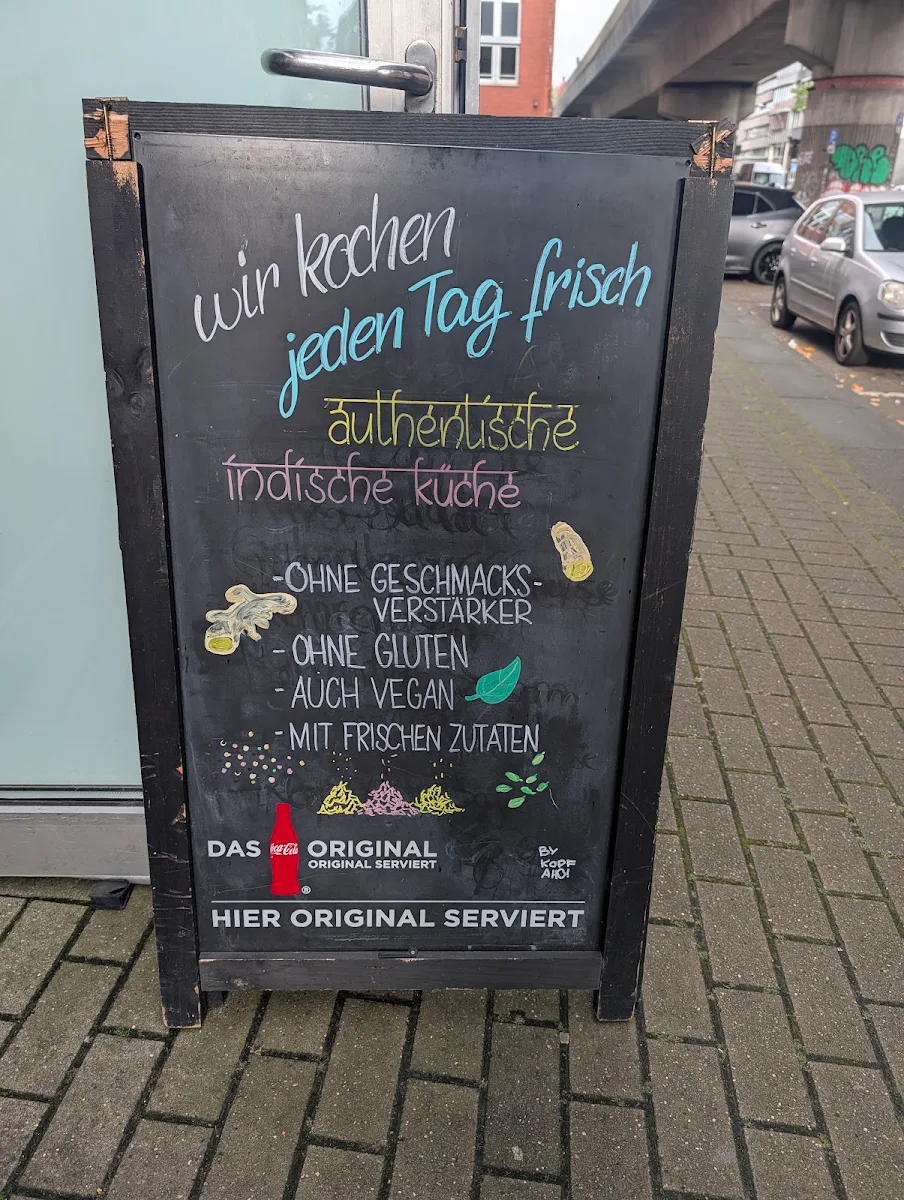 wir kochen
jeden Tag frisch
authentische
indische küche
-OHNE GESCHMACKS-
VERSTÄRKER
- OHNE GLUTEN
- AUCH VEGAN
- MIT FRISCHEN ZUTATEN
DAS Coca-Cola ® ORIGINAL
ORIGINAL SERVIERT
BY
KOPF
AHOI
HIER ORIGINAL SERVIERT